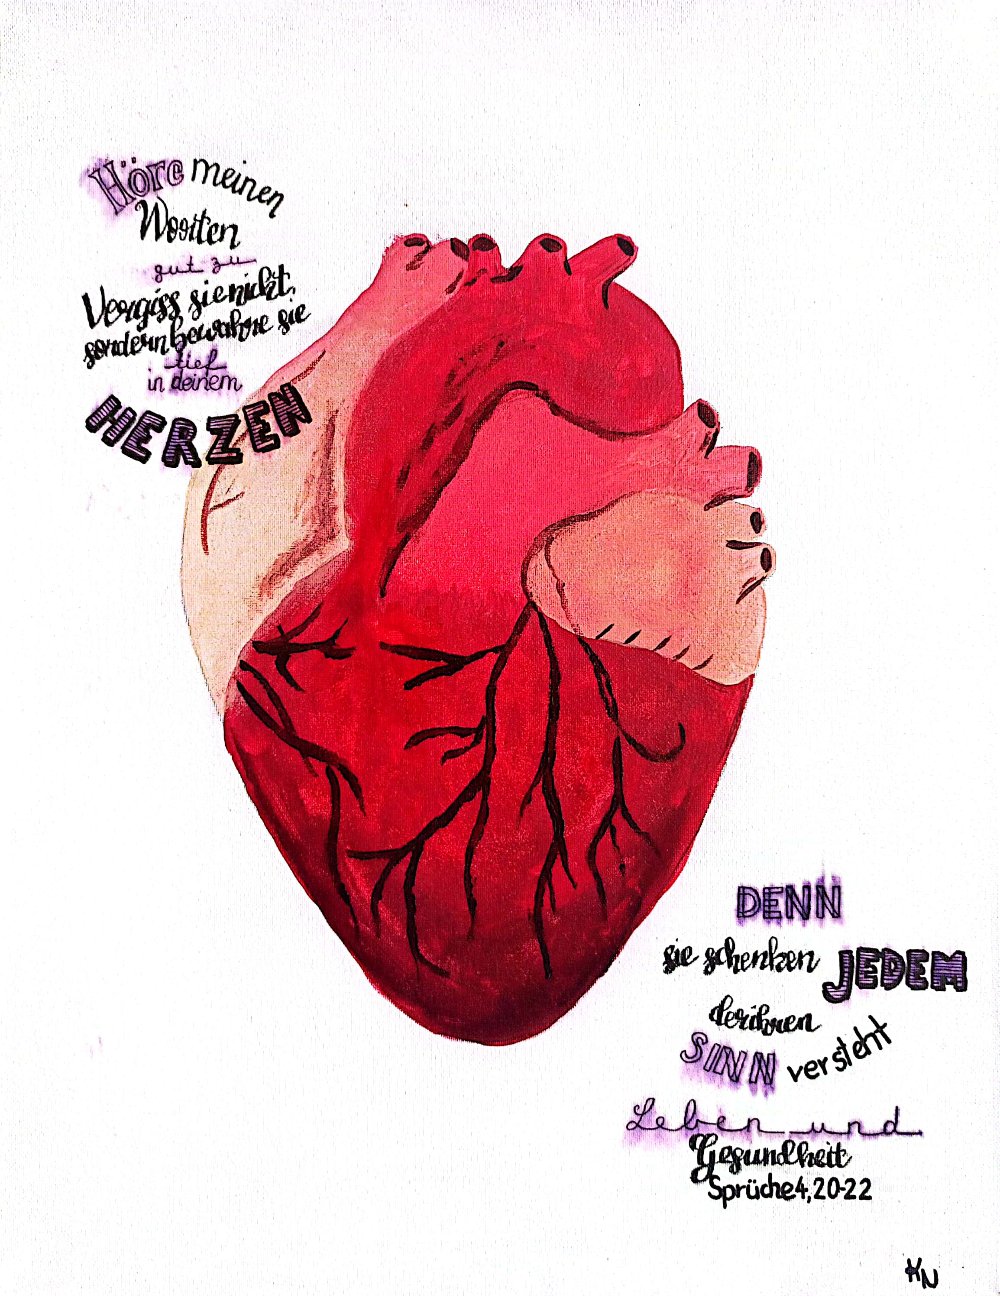 Höre meinen
Worten
gut zu
Vergiss sie nicht,
sondern bewahre sie
tief
in deinem
HERZEN
DENN
sie schenken JEDEM
der ihren
SINN versteht
Leben und
Gesundheit
Sprüche 4,20-22
KN